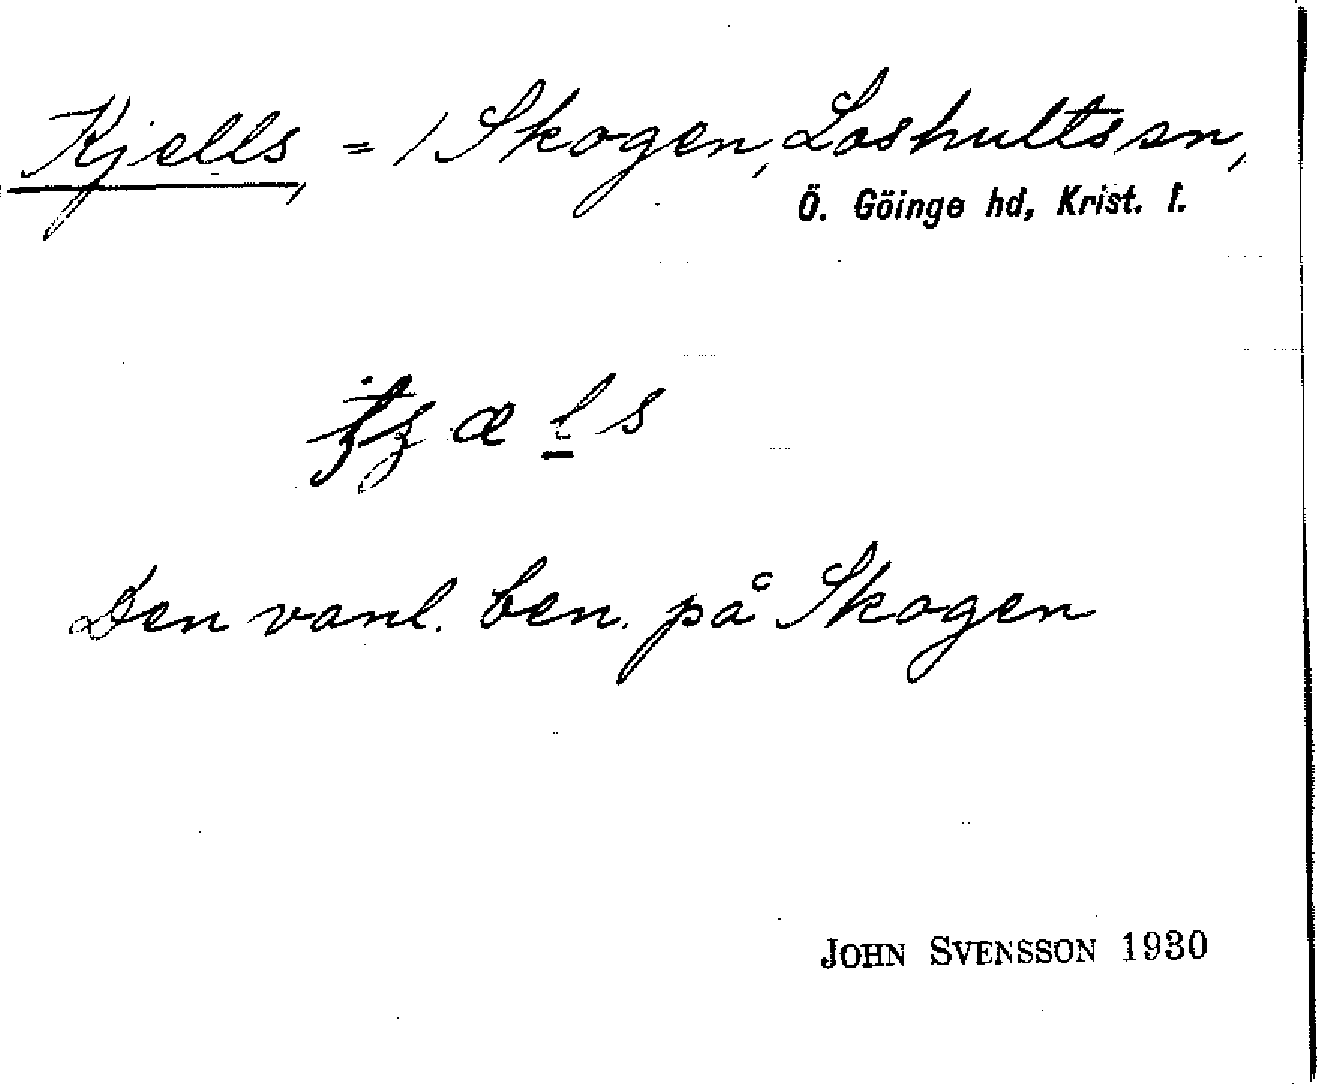 Kjells, = 1 Skogen, Loshults sn,
Ö. Göinge hd, Krist. l.
æ l s
Den vanl. ben. på Skogen
JOHN SVENSSON 1930